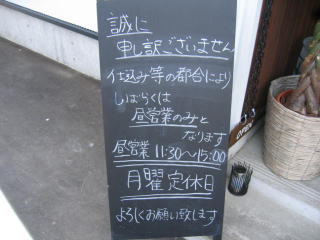 誠に
申し訳ございません
仕込み等の都合により
しばらくは
昼営業のみと
なります
昼営業 11:30〜15:00
月曜定休日
よろしくお願い致します
OPEN